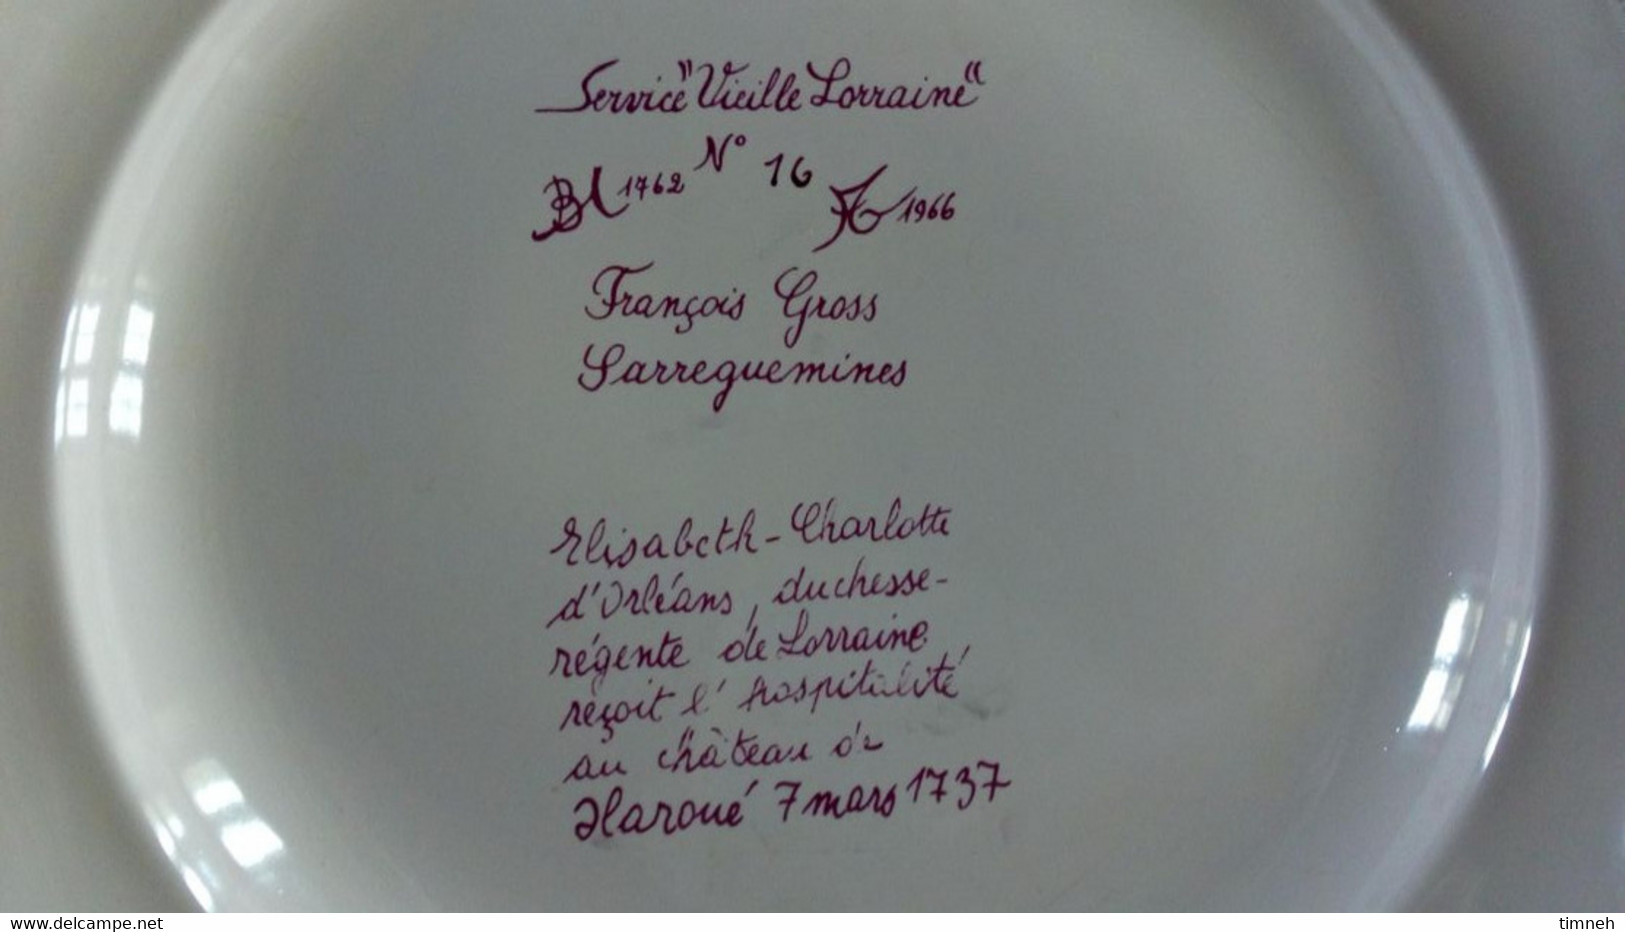 Service "Vieille Lorraine"
N° 16
1762
1966
François Gross
Sarreguemines
Elisabeth-Charlotte
d'Orléans, duchesse-
régente de Lorraine,
reçoit l'hospitalité
au château de
Haroué 7 mars 1737
www.delcampe.net
timneh